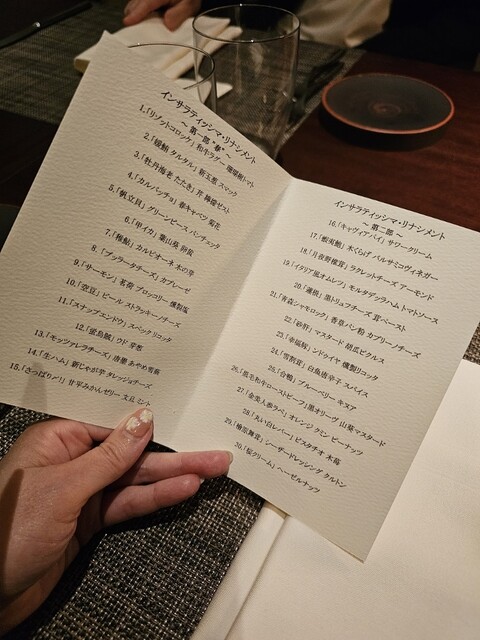 インサラティッシマ・リナシメント
～ 第一部 "春" ～
1.「リゾットコロッケ」和牛ラグー 珊瑚樹トマト
2.「縞鯵 タルタル」新玉葱 スマック
3.「牡丹海老 たたき」芹 檸檬ゼスト
4.「カルパッチョ」春キャベツ 菊花
5.「帆立貝」グリーンピース パンチェッタ
6.「甲イカ」葉山葵
7.「稚鮎」カルピオーネ 木の芽
8.「ブッラータチーズ」カプレーゼ
9.「サーモン」茗荷 ブロッコリー 燻製塩
10.「空豆」ビール ストラッキーノチーズ
11.「スナップエンドウ」スペック リコッタ
12.「蛍烏賊」ウド 芽葱
13.「モッツァレラチーズ」唐墨 あやめ雪蕪
14.「生ハム」新じゃが芋 タレッジョチーズ
15.「さっぱりッ!」甘平みかんゼリー 文旦 ミント
インサラティッシマ・リナシメント
～ 第二部 ～
16.「キャヴィアパイ」サワークリーム
17.「樹実鮑」木くらげ バルサミコヴィネガー
18.「月夜野椎茸」ラクレットチーズ アーモンド
19.「イタリア風オムレツ」モルタデッラハム トマトソース
20.「蓮根」黒トリュフチーズ 茸ペースト
21.「青森シャモロック」香草パン粉 カプリーノチーズ
22.「砂肝」マスタード 胡瓜ピクルス
23.「幸福豚」ンドゥイヤ 燻製リコッタ
24.「雪割茸」白魚 唐辛子 スパイス
25.「合鴨」ブルーベリー キヌア
26.「黒毛和牛ローストビーフ」黒オリーヴ 山葵マスタード
27.「金美人参ラペ」オレンジ クミン ピーナッツ
28.「丸い白レバー」ピスタチオ 木苺
29.「檜原舞茸」シーザードレッシング クルトン
30.「桜クリーム」ヘーゼルナッツ